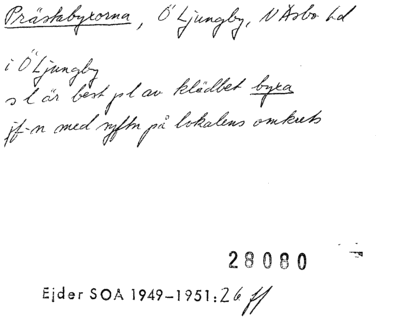 Prästabyxorna, Ö Ljungby, N Åsbo hd
i Ö Ljungby
s l är best pl av klädbet byxa
jf-n med syftn på lokalens omkrets
28080
Ejder SOA 1949-1951:26 ff